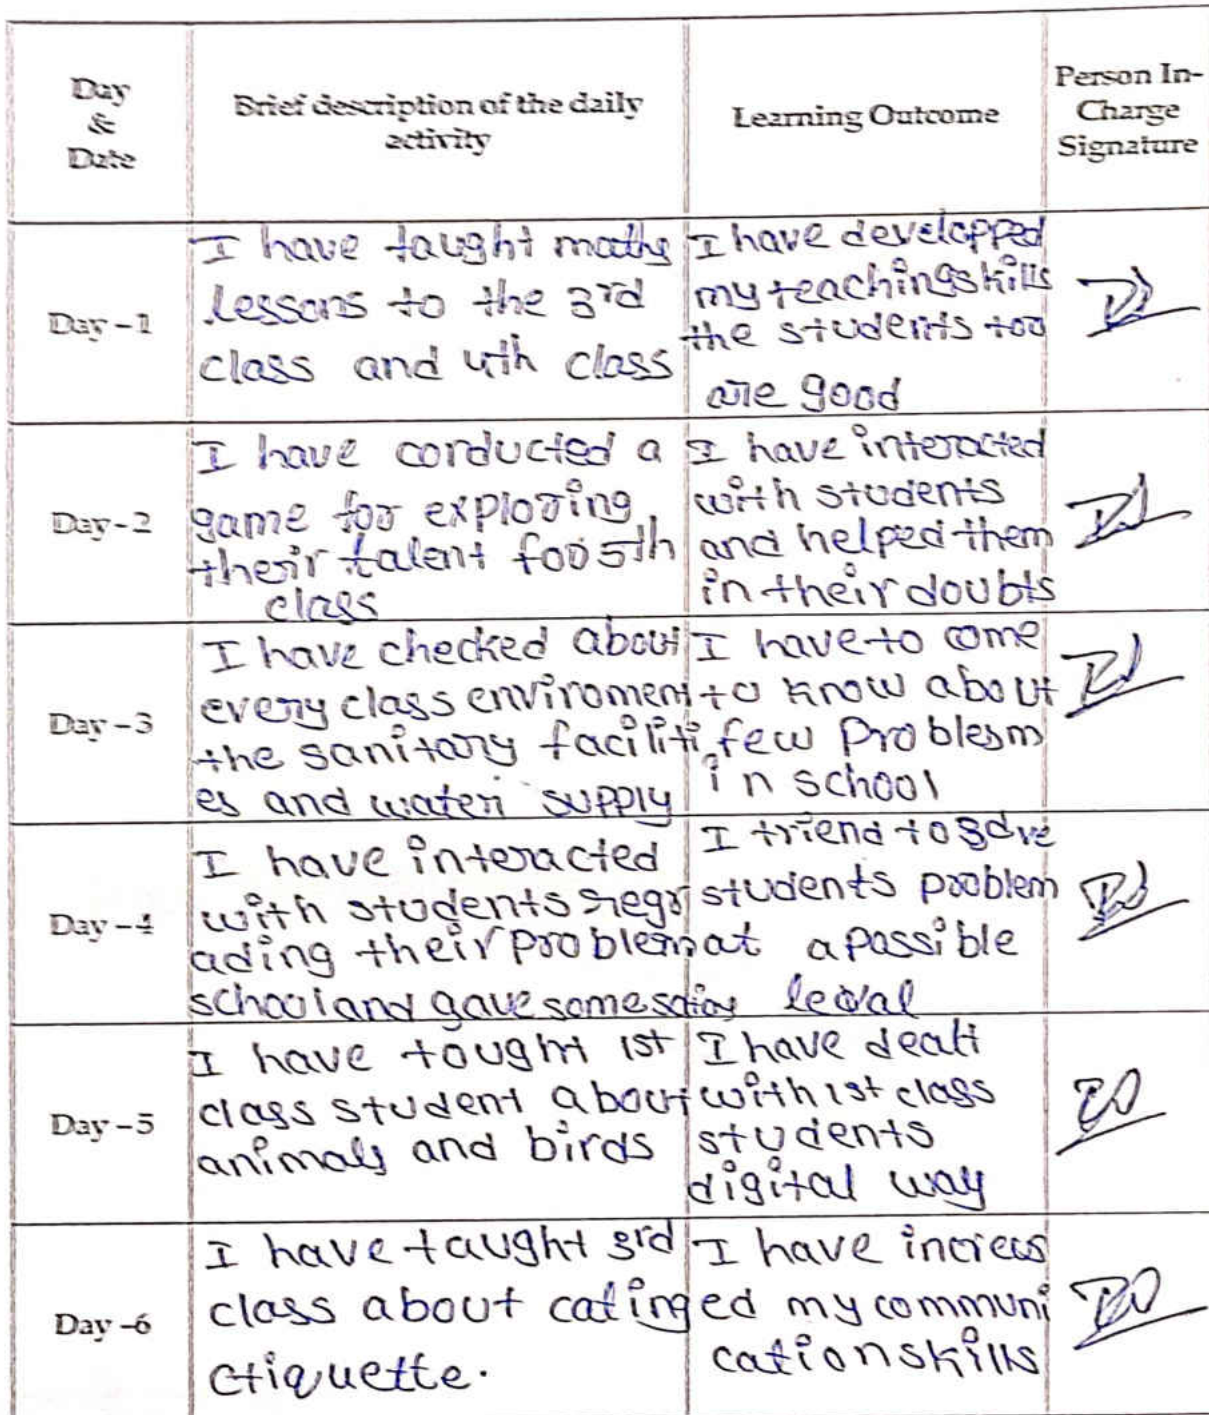 Day
&
Date
Brief description of the daily
activity
Learning Outcome
Person In-
Charge
Signature
Day - 1
I have taught maths
lessons to the 3rd
class and 4th class
I have developped
my teachingskills
the students too
are good
Day - 2
I have corducted a
game for exploring
their talent foo 5th
class
I have interacted
with students
and helped them
in their doubts
Day - 3
I have checked about
every class enviroment
the sanitary faciliti
es and water supply
I have to come
to know about
few Problesm
in school
Day - 4
I have interacted
with students regr
ading their problem
school and gave some
I triend to solve
students problem
at a possible
leval
Day - 5
I have tought 1st
class student about
animals and birds
I have dealt
with 1st class
students
digital way
Day -6
I have taught 3rd
class about cating
ctiquette.
I have increas
ed my communi
cation skills